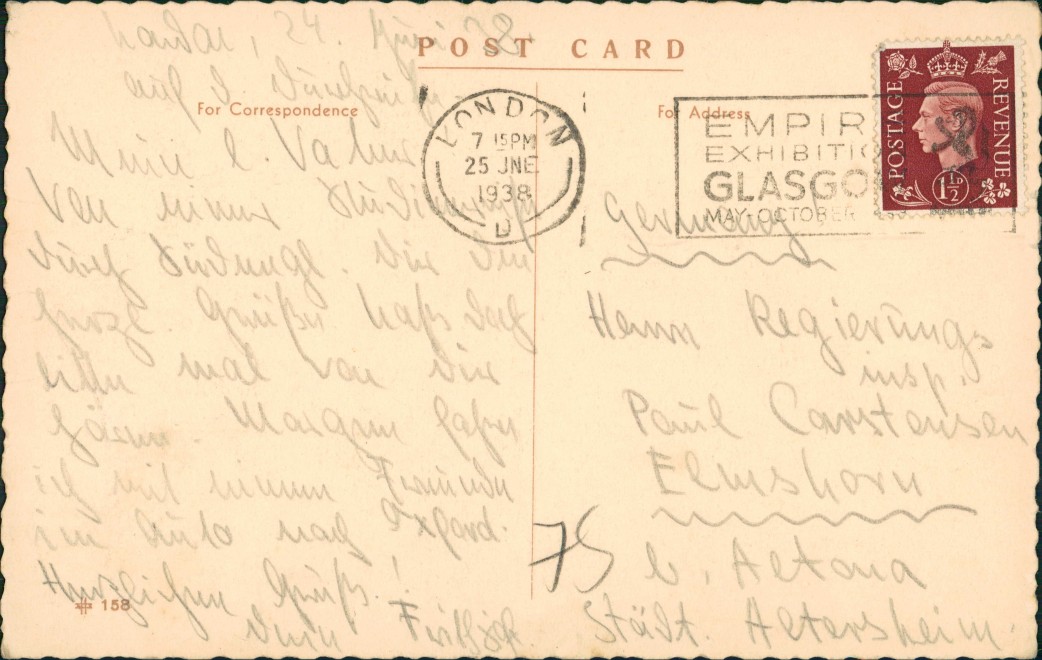 London, 24. Juni 38
POST CARD
auf d. Durchreise
For Correspondence
For Address
LONDON
7 15PM
25 JNE
1938
D
EMPIR
EXHIBITI
GLASGO
MAY-OCTOBER
POSTAGE
REVENUE
1½D
Mein l.
Von meiner
durch Südengl. Dir die
herzl. Grüße. Laß doch
bitte mal von Dir
hören. Morgen fahre
ich mit meinen Freunden
im Auto nach Oxford.
Herzlichen Gruß!
Dein
158
Germany
Herrn Regierungs
insp.
Paul Carstensen
Elmshorn
75
b. Altona
Städt. Altersheim.